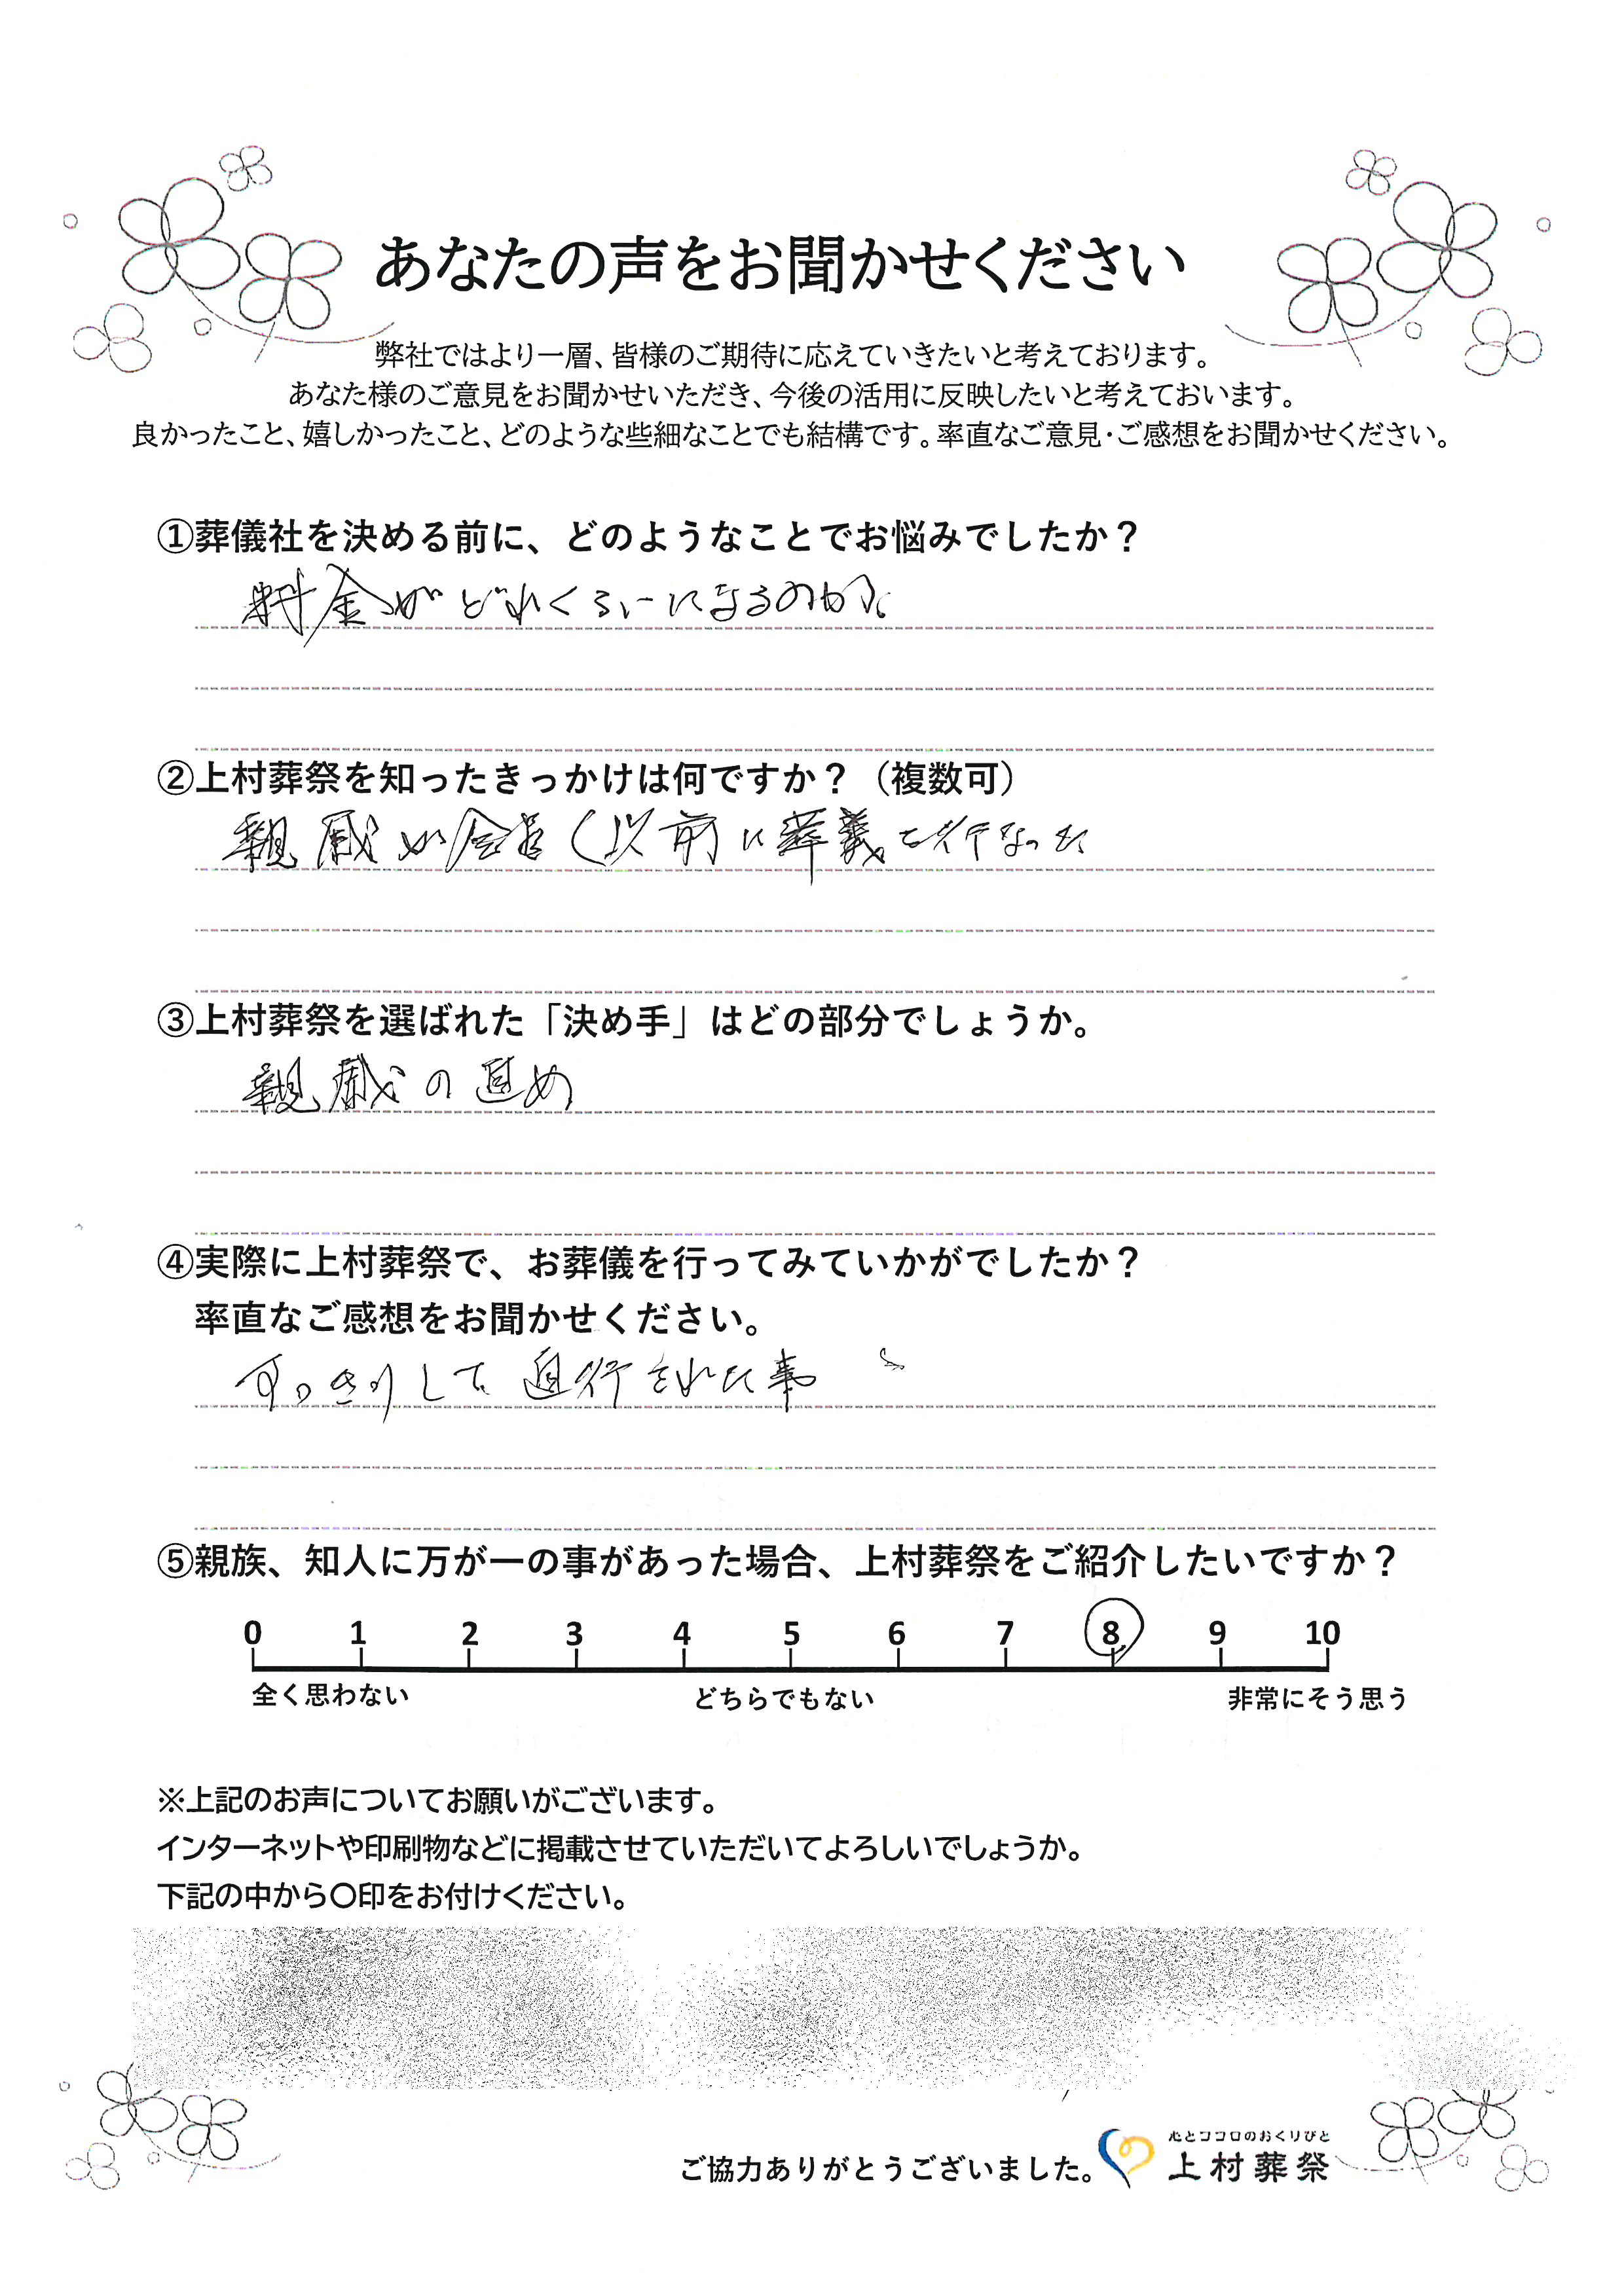 あなたの声をお聞かせください
弊社ではより一層、皆様のご期待に応えていきたいと考えております。
あなた様のご意見をお聞かせいただき、今後の活用に反映したいと考えておいます。
良かったこと、嬉しかったこと、どのような些細なことでも結構です。率直なご意見・ご感想をお聞かせください。
①葬儀社を決める前に、どのようなことでお悩みでしたか？
料金がどれくらいになるのか。
②上村葬祭を知ったきっかけは何ですか？（複数可）
親戚が会員（以前に葬義を行なった
③上村葬祭を選ばれた「決め手」はどの部分でしょうか。
親戚の
④実際に上村葬祭で、お葬儀を行ってみていかがでしたか？
率直なご感想をお聞かせください。
すっきりして 行された事
⑤親族、知人に万が一の事があった場合、上村葬祭をご紹介したいですか？
0 1 2 3 4 5 6 7 8 9 10
全く思わない どちらでもない 非常にそう思う
※上記のお声についてお願いがございます。
インターネットや印刷物などに掲載させていただいてよろしいでしょうか。
下記の中から〇印をお付けください。
心とココロのおくりびと
ご協力ありがとうございました。 上村葬祭